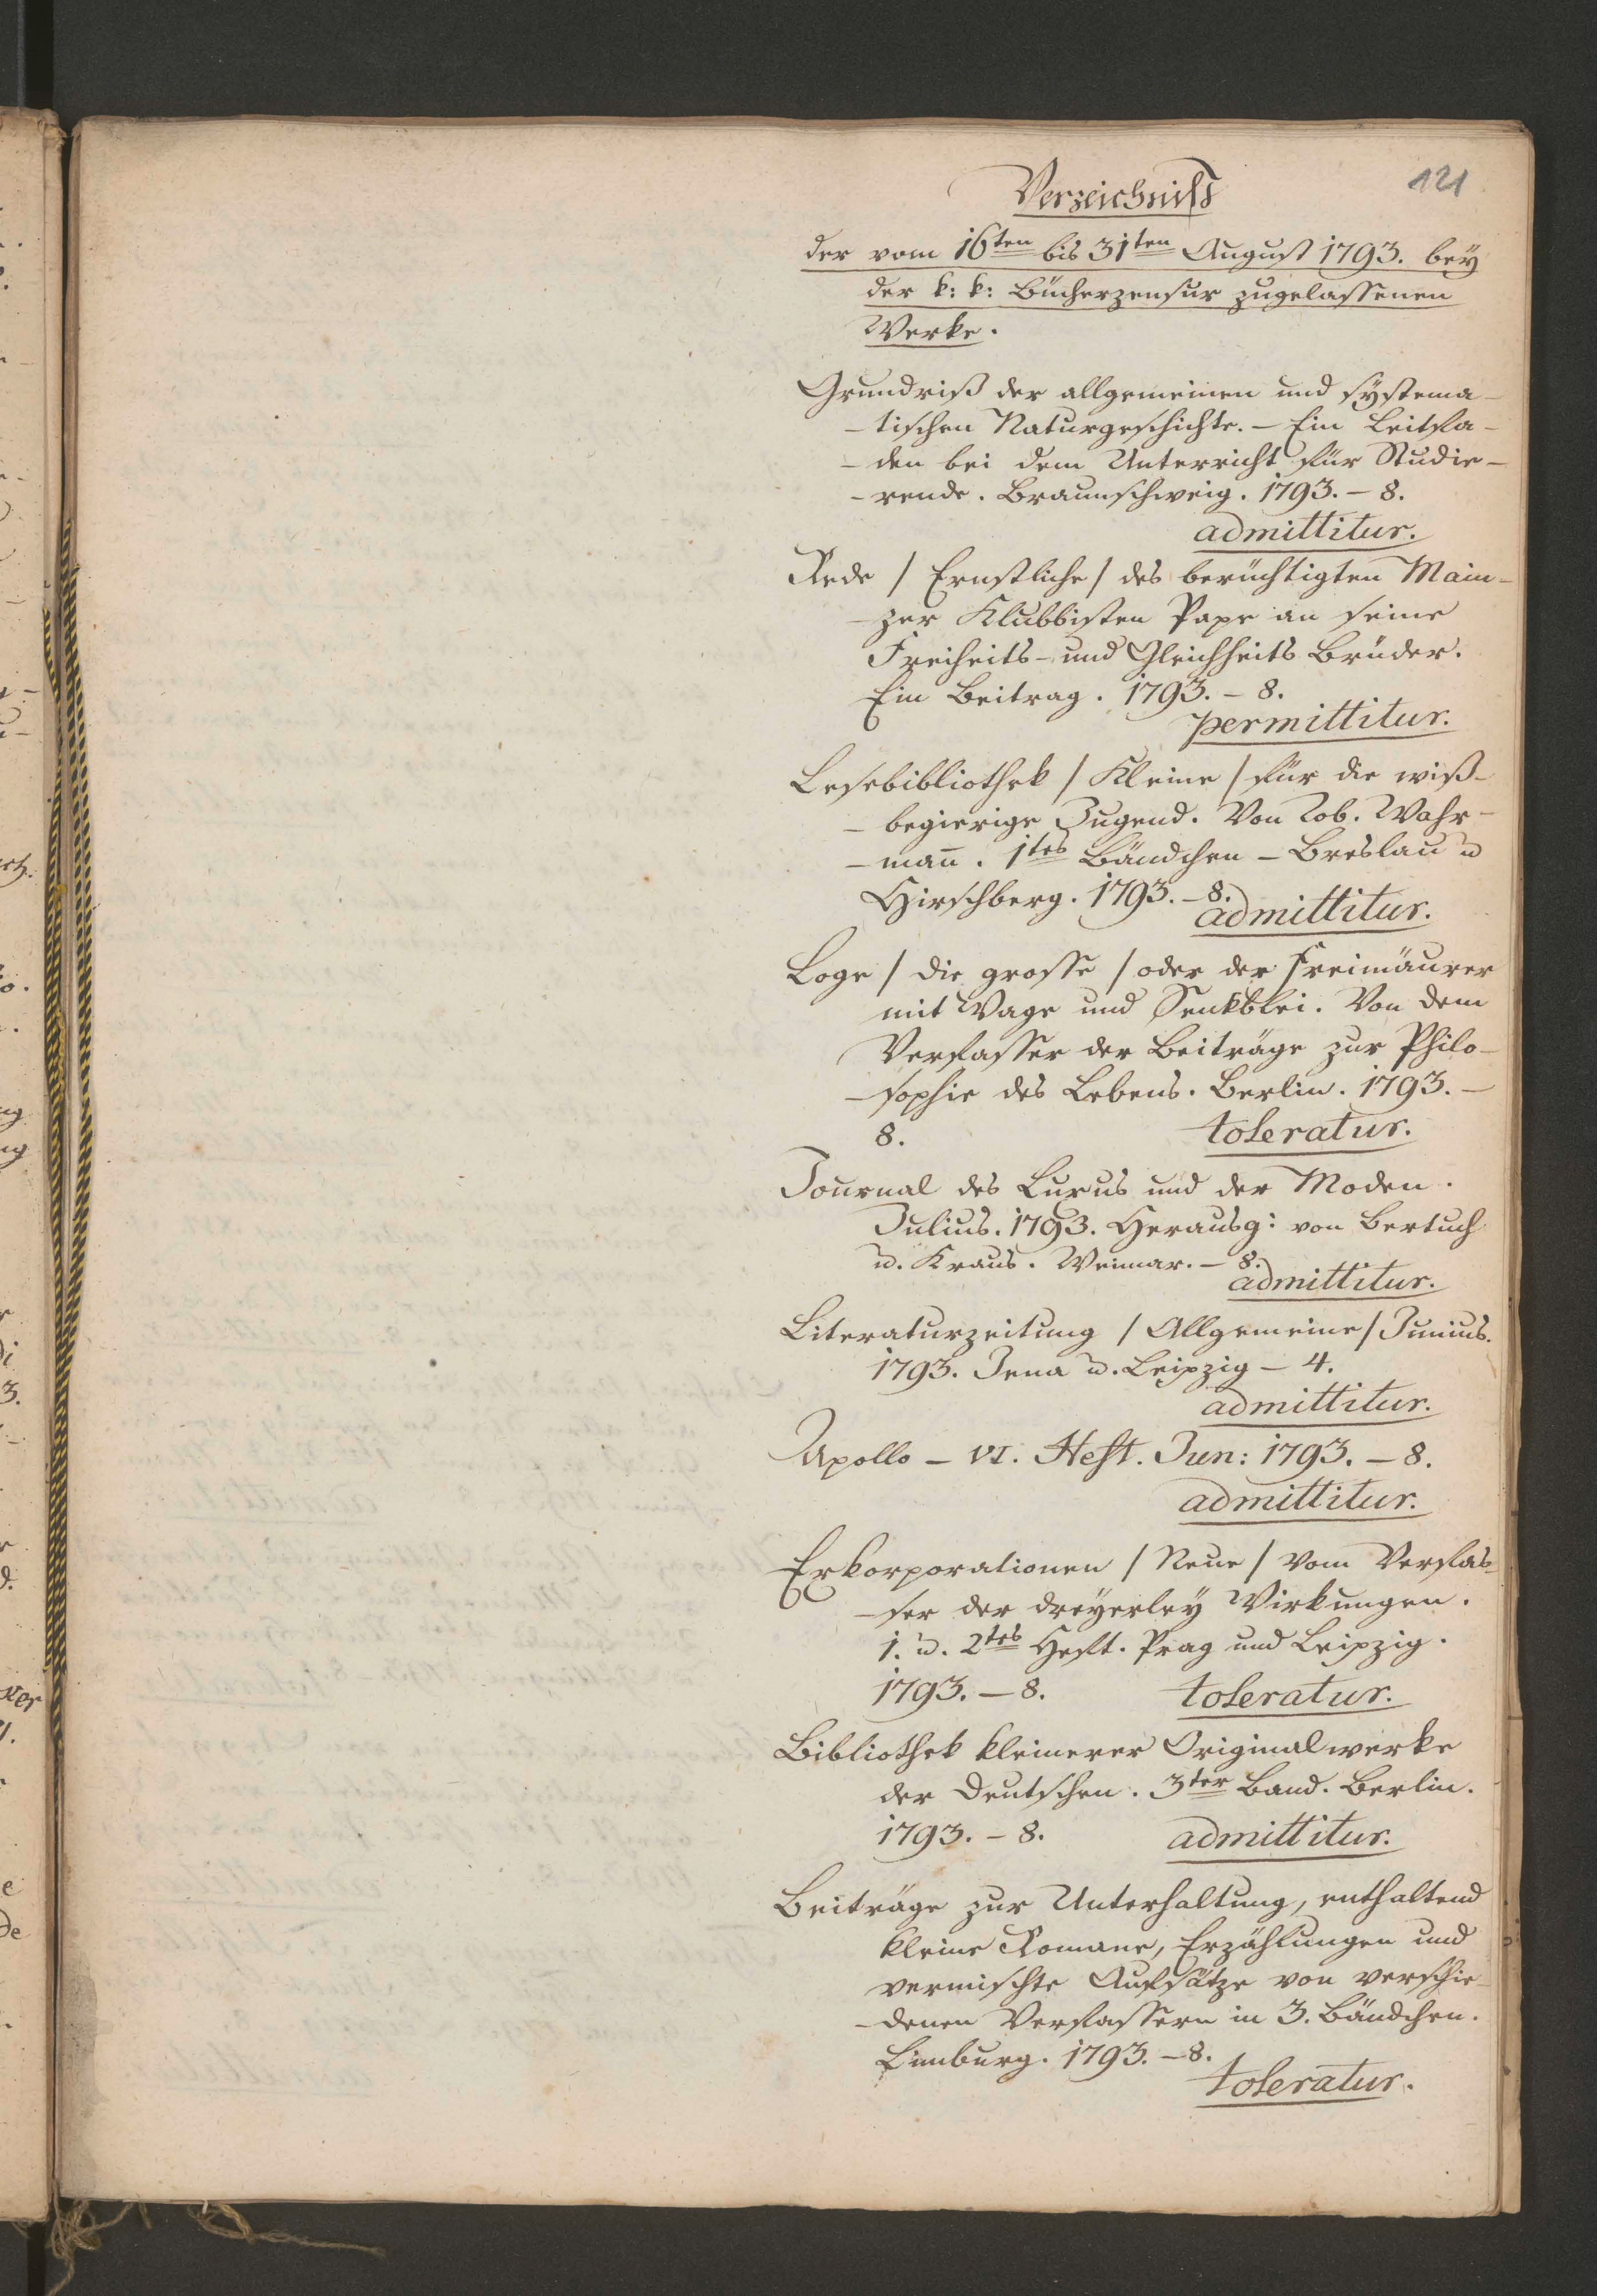 121
Verzeichniß
der vom 16ten bis 31ten August 1793. bey
der k: k: Bücherzensur zugelassenen
Werke.
Grundriß der allgemeinen und systema-
-tischen Naturgeschichte. – Ein Leitfa-
-den bei dem Unterricht für Studie-
-rende. Braunschweig. 1793. – 8.
admittitur.
Rede / Ernstliche / des berüchtigten Main-
-zer Klubbisten Pape an seine
Freiheits- und Gleichheits Brüder.
Ein Beitrag. 1793. – 8.
permittitur.
Lesebibliothek / Kleine / für die wiß-
-begierige Jugend. Von Tob. Wahr-
-man̄. 1tes Bändchen – Breslau u
Hirschberg. 1793. – 8.
admittitur.
Loge / die grosse / oder der Freimäurer
mit Wage und Senkblei. Von dem
Verfasser der Beiträge zur Philo-
-sophie des Lebens. Berlin. 1793. –
8. toleratur.
Journal des Luxus und der Moden.
Julius. 1793. Herausg: von Bertuch
u. Kraus. Weimar. – 8.
admittitur.
Literaturzeitung / Allgemeine / Junius.
1793. Jena u. Leipzig – 4.
admittitur.
Apollo – VI. Heft. Jun: 1793. – 8.
admittitur.
Exkorporationen / Neue / vom Verfas-
-ser der dreyerley Wirkungen.
1. u. 2tes Heft. Prag und Leipzig.
1793. – 8. toleratur.
Bibliothek kleinerer Originalwerke
der Deutschen. 3ter Band. Berlin.
1793. – 8. admittitur.
Beiträge zur Unterhaltung, enthaltend
kleine Romane, Erzählungen und
vermischte Aufsätze von verschie-
-denen Verfassern in 3. Bändchen.
Limburg. 1793. – 8.
toleratur.